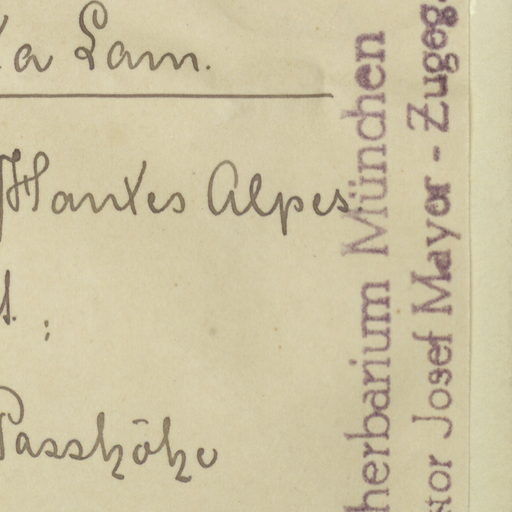 a Lam.
Hautes Alpes.
Passhöhe
herbarium München
tor Josef Mayer - Zugeg.